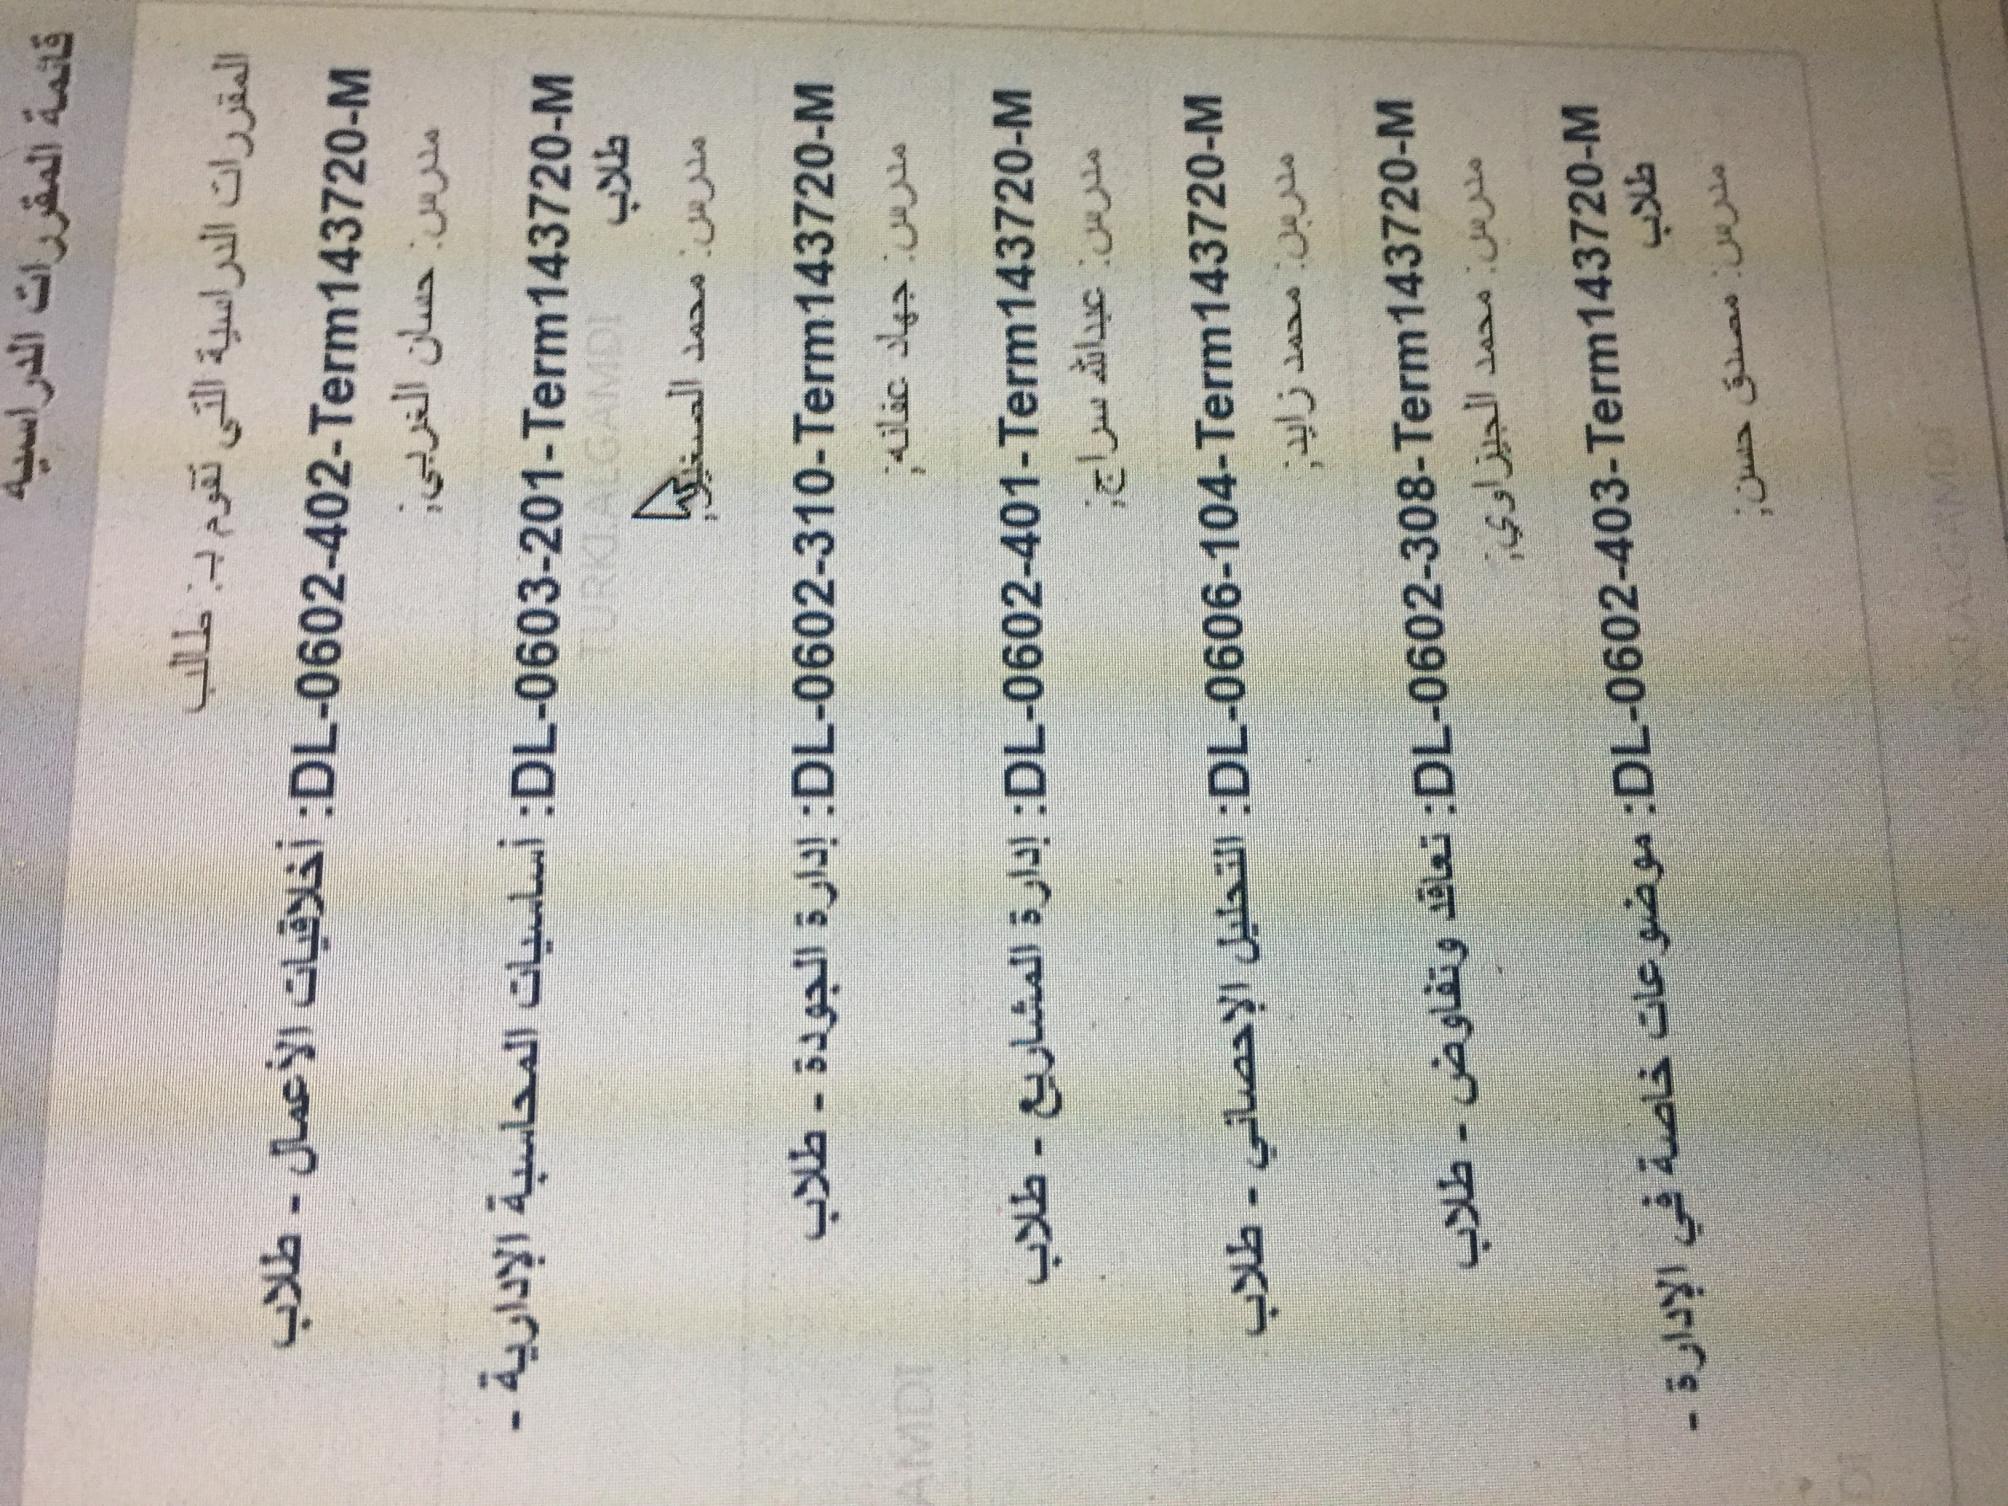 قائمة المقررات الدراسية
المقررات الدراسية التي تقوم بـ: طالب
DL-0602-402-Term143720-M: أخلاقيات الأعمال - طلاب
مدرس: حسان الغربي;
DL-0603-201-Term143720-M: أساسيات المحاسبة الإدارية -
طلاب
TURKI ALGAMDI
مدرس: محمد الصغير;
DL-0602-310-Term143720-M: إدارة الجودة - طلاب
مدرس: جهاد عفانه;
AMDI
DL-0602-401-Term143720-M: إدارة المشاريع - طلاب
مدرس: عبدالله سراج;
DL-0606-104-Term143720-M: التحليل الإحصائي - طلاب
مدرس: محمد زايد;
DL-0602-308-Term143720-M: تعاقد وتفاوض - طلاب
مدرس: محمد الجيزاوي;
DL-0602-403-Term143720-M: موضوعات خاصة في الإدارة -
طلاب
مدرس: مصدق حسن;
TURKI ALGAMDI